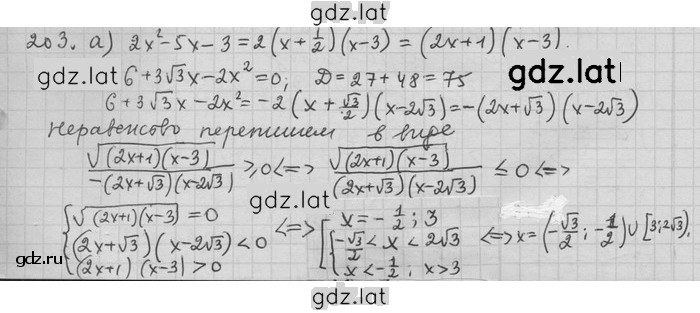 gdz.lat
203. а) 2x²-5x-3=2(x+1/2)(x-3)=(2x+1)(x-3).
gdz.lat
6+3√3x-2x²=0; D=27+48=75
gdz.lat
6+3√3x-2x²=-2(x+√3/2)(x-2√3)=-(2x+√3)(x-2√3)
gdz.lat
Неравенсво перепишем в виде
√((2x+1)(x-3))/(-(2x+√3)(x-2√3)) ⩾0<=> √((2x+1)(x-3))/((2x+√3)(x-2√3)) ≤0<=>
gdz.lat
[{√((2x+1)(x-3))=0
(2x+√3)(x-2√3)<0
(2x+1)(x-3)>0
<=> [x=-1/2; 3
{-√3/2<x<2√3
x<-1/2; x>3
<=>x=(-√3/2; -1/2)∪[3;2√3).
gdz.ru
gdz.lat
gdz.lat